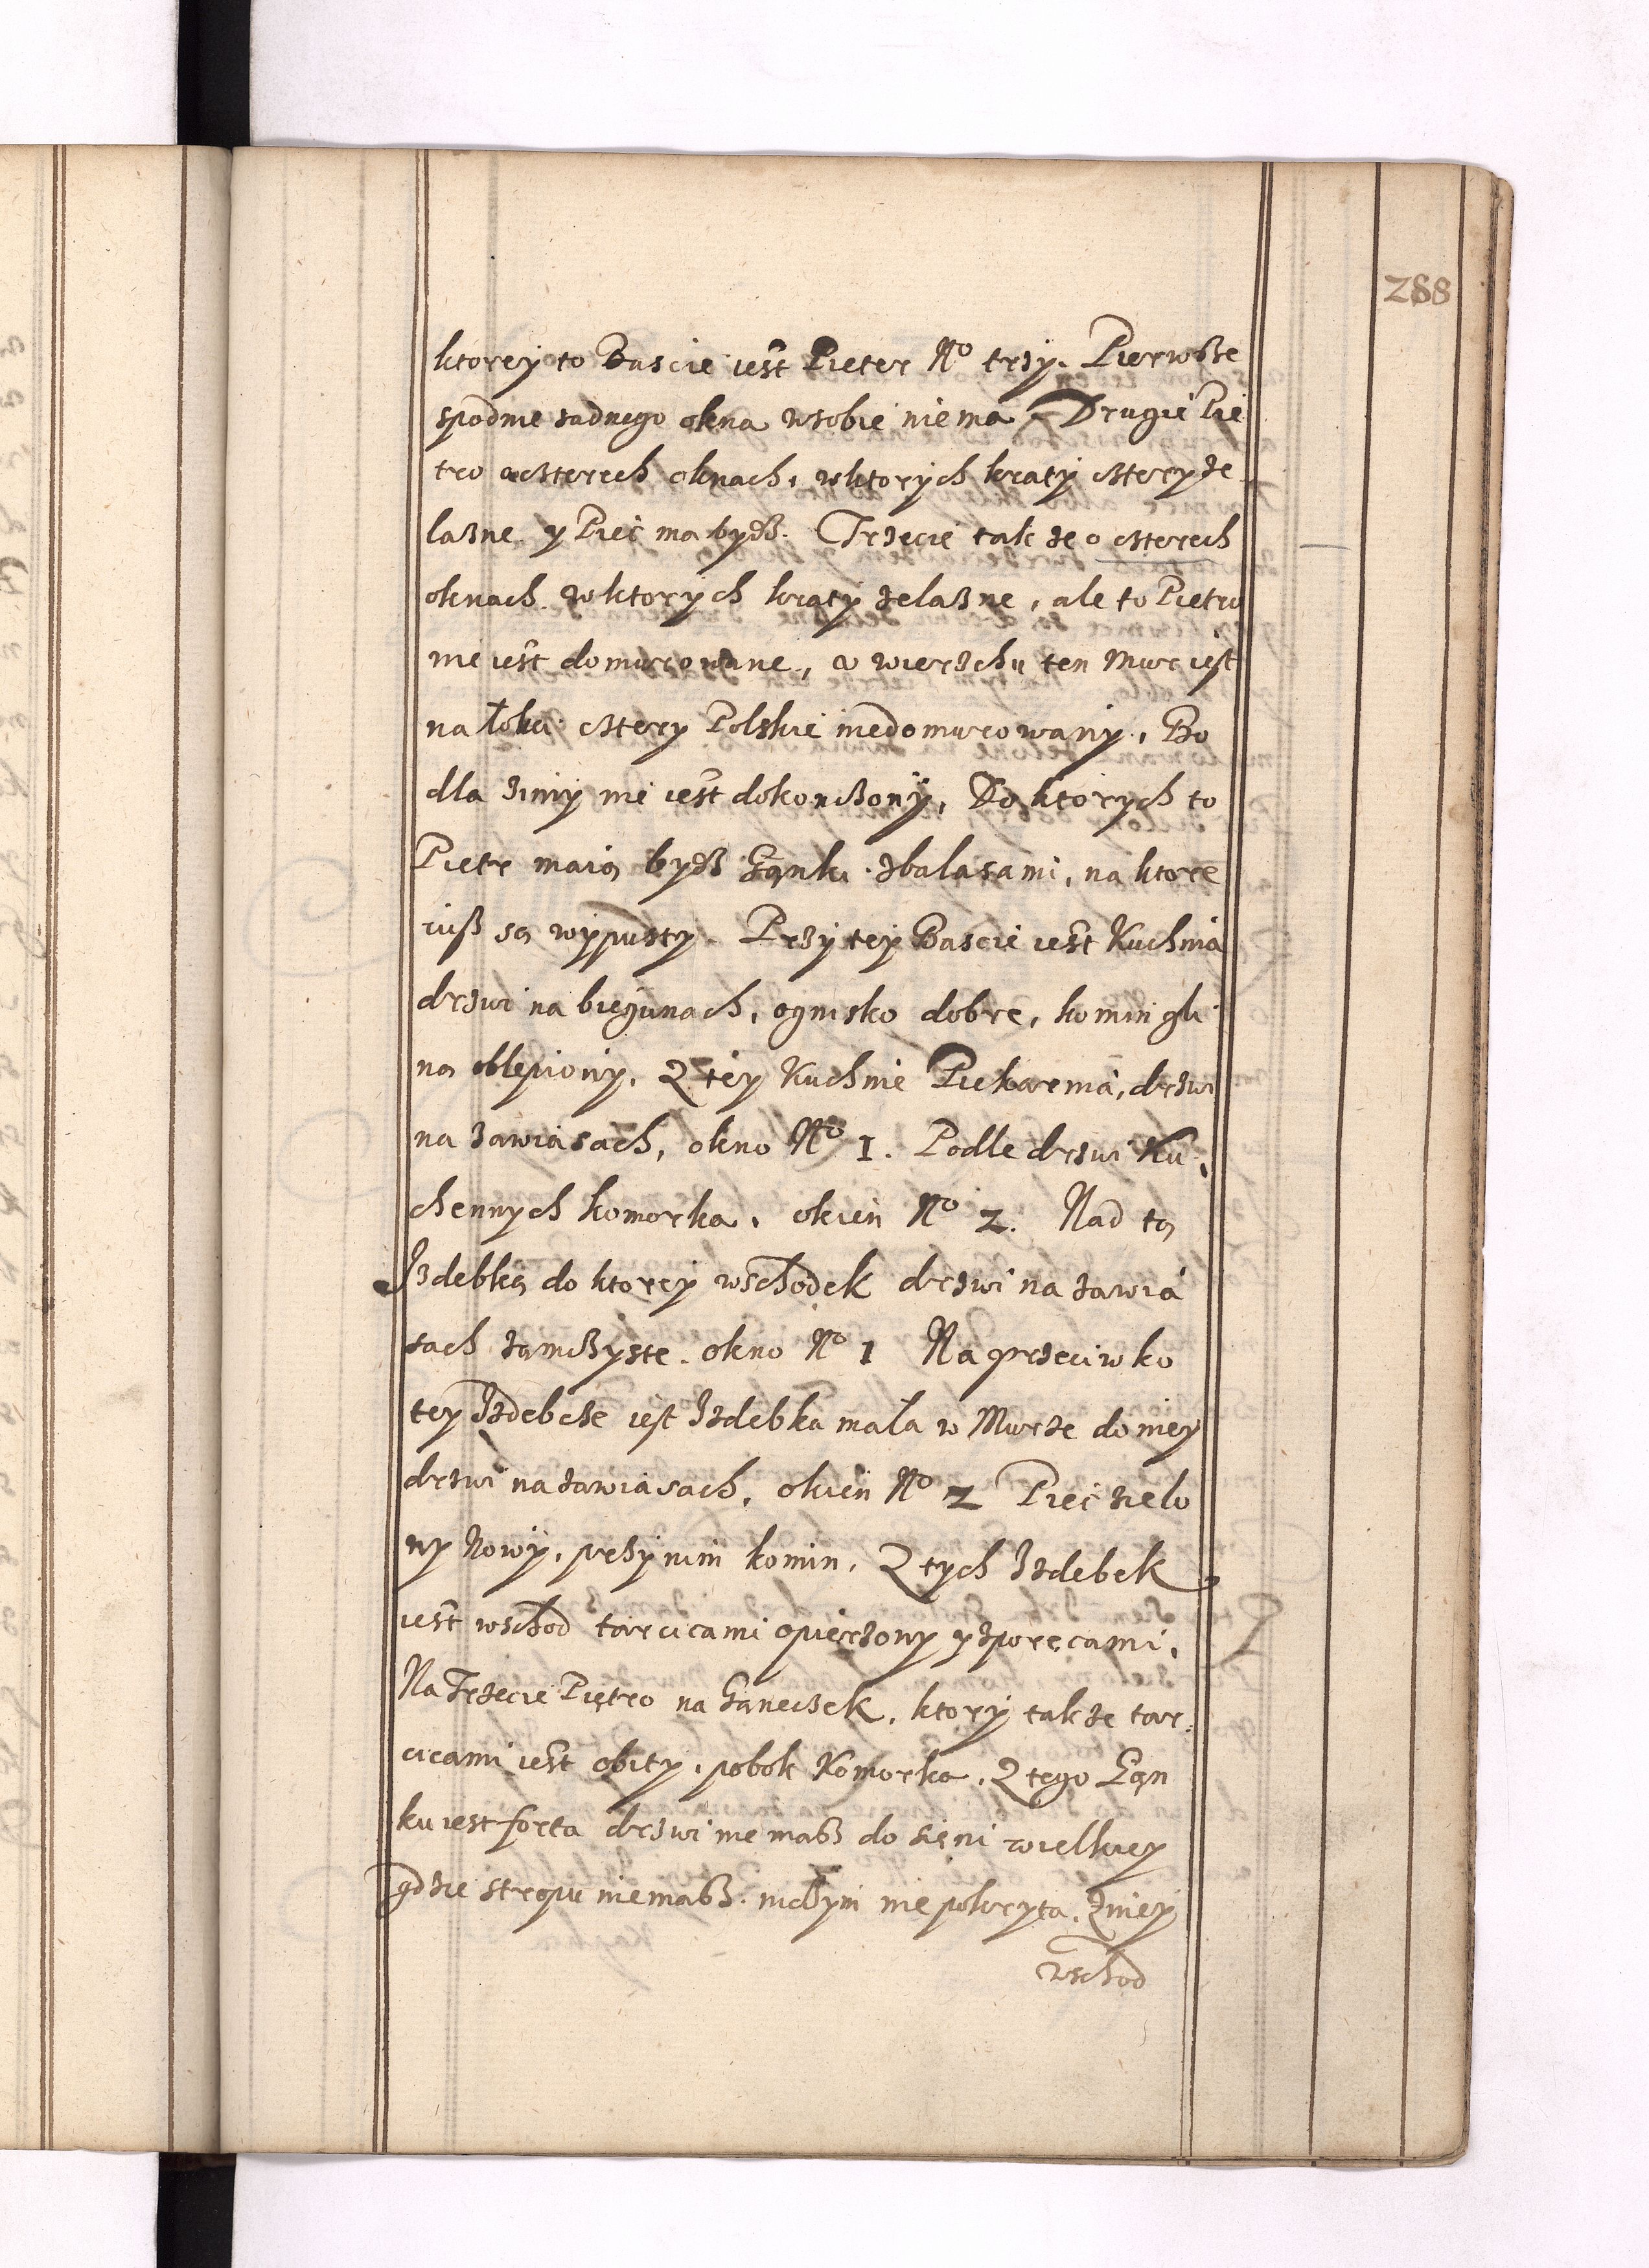 288
ktorey to Bascie iest Pieter No trzy. Pierwsze
spodnie zadnego okna wsobie niema. Drugie Pie
tro oczterech oknach, wktorych kraty cztery ze
lazne y Piec ma bydź. Trzecie takze o czterech
oknach wktorych kraty zelazne, ale to Pietro
nie iest domurowane, a wierzchu ten Mur iest
na łoku cztery Polskie niedomurowany, Bo
dla zimy nie iest dokonczony, Do ktorych to
Pietr maią bydź Gąnki zbalasami, na ktore
iusz są wypusty. Przy tey Bascie iest Kuchnia
drzwi na biegunach, ognisko dobre, komin gli
ną oblepiony, Z tey Kuchnie Piekarnia, drzwi
na zawiasach, okno No 1. Podle drzwi Ku
chennych komorka, okien No 2. Nad tą
Izdebką do ktorey wschodek drzwi na zawia
sach zamczyste. okno No 1 Na przeciwko
tey Izdebcze iest Izdebka mała w Murze do niey
drzwi na zawiasach, okien No 2 Piec zielo
ny Nowy, przy nim komin, Z tych Izdebek
iest wschod tarcicami opierzony y zporęcami,
Na Trzecie Piętro na Gąneczek, ktory takze tar
cicami iest obity, pobok Komorka, Z tego Gąn
ku iest forta drzwi niemasz do sięni wielkiey
gdzie stropu niemasz. niczym nie pokryta, Zniey
wschod